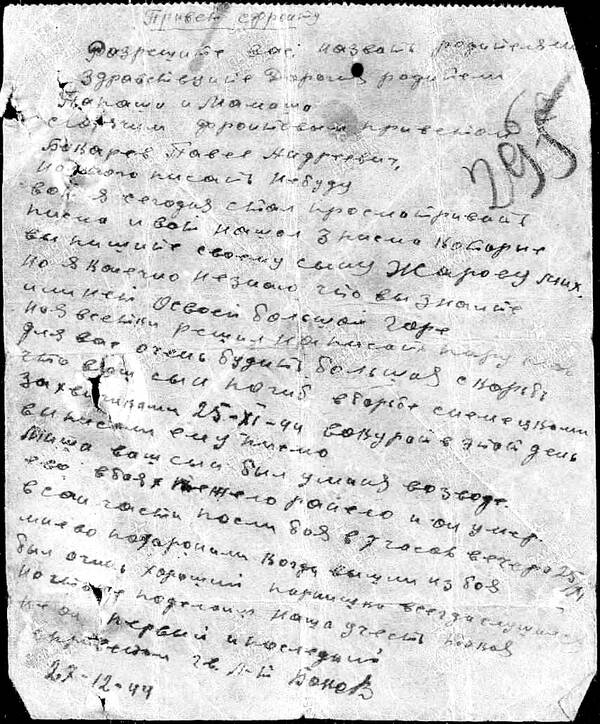 Привет с фронту
Разрешите вас назвать родителями
Здравствуйте Дорогие родители
Папаша и Мамаша
с горячим фронтовым приветом
295
Бокарев Павел Андреевич,
много писать небуду
вот я сегодня стал просматривать
писма и вот нашол 3 писма которые
вы пишите своему сыну Жарову Мих.
но я конечно незнаю что вы знаите
или нет Освоей большой горе
но я всетки решил написать пару
для вас очень будить большая скорбь
что ваш сын погиб вборьбе снемецкими
захвтчиками 25-XI-44 в этой день
вы писали ему писмо
Миша ваш сын был уменя возводе.
его вбоях тежело ранело и он умер.
в сан части посли боя в 7 часов вечера 25/XI
мы ево похоронили когда вышли из боя
был очень хороший парнишка всегда слушился
но что поделаеш наша учесть
не он первый и последний
с приветом гв. л-т
27-12-44